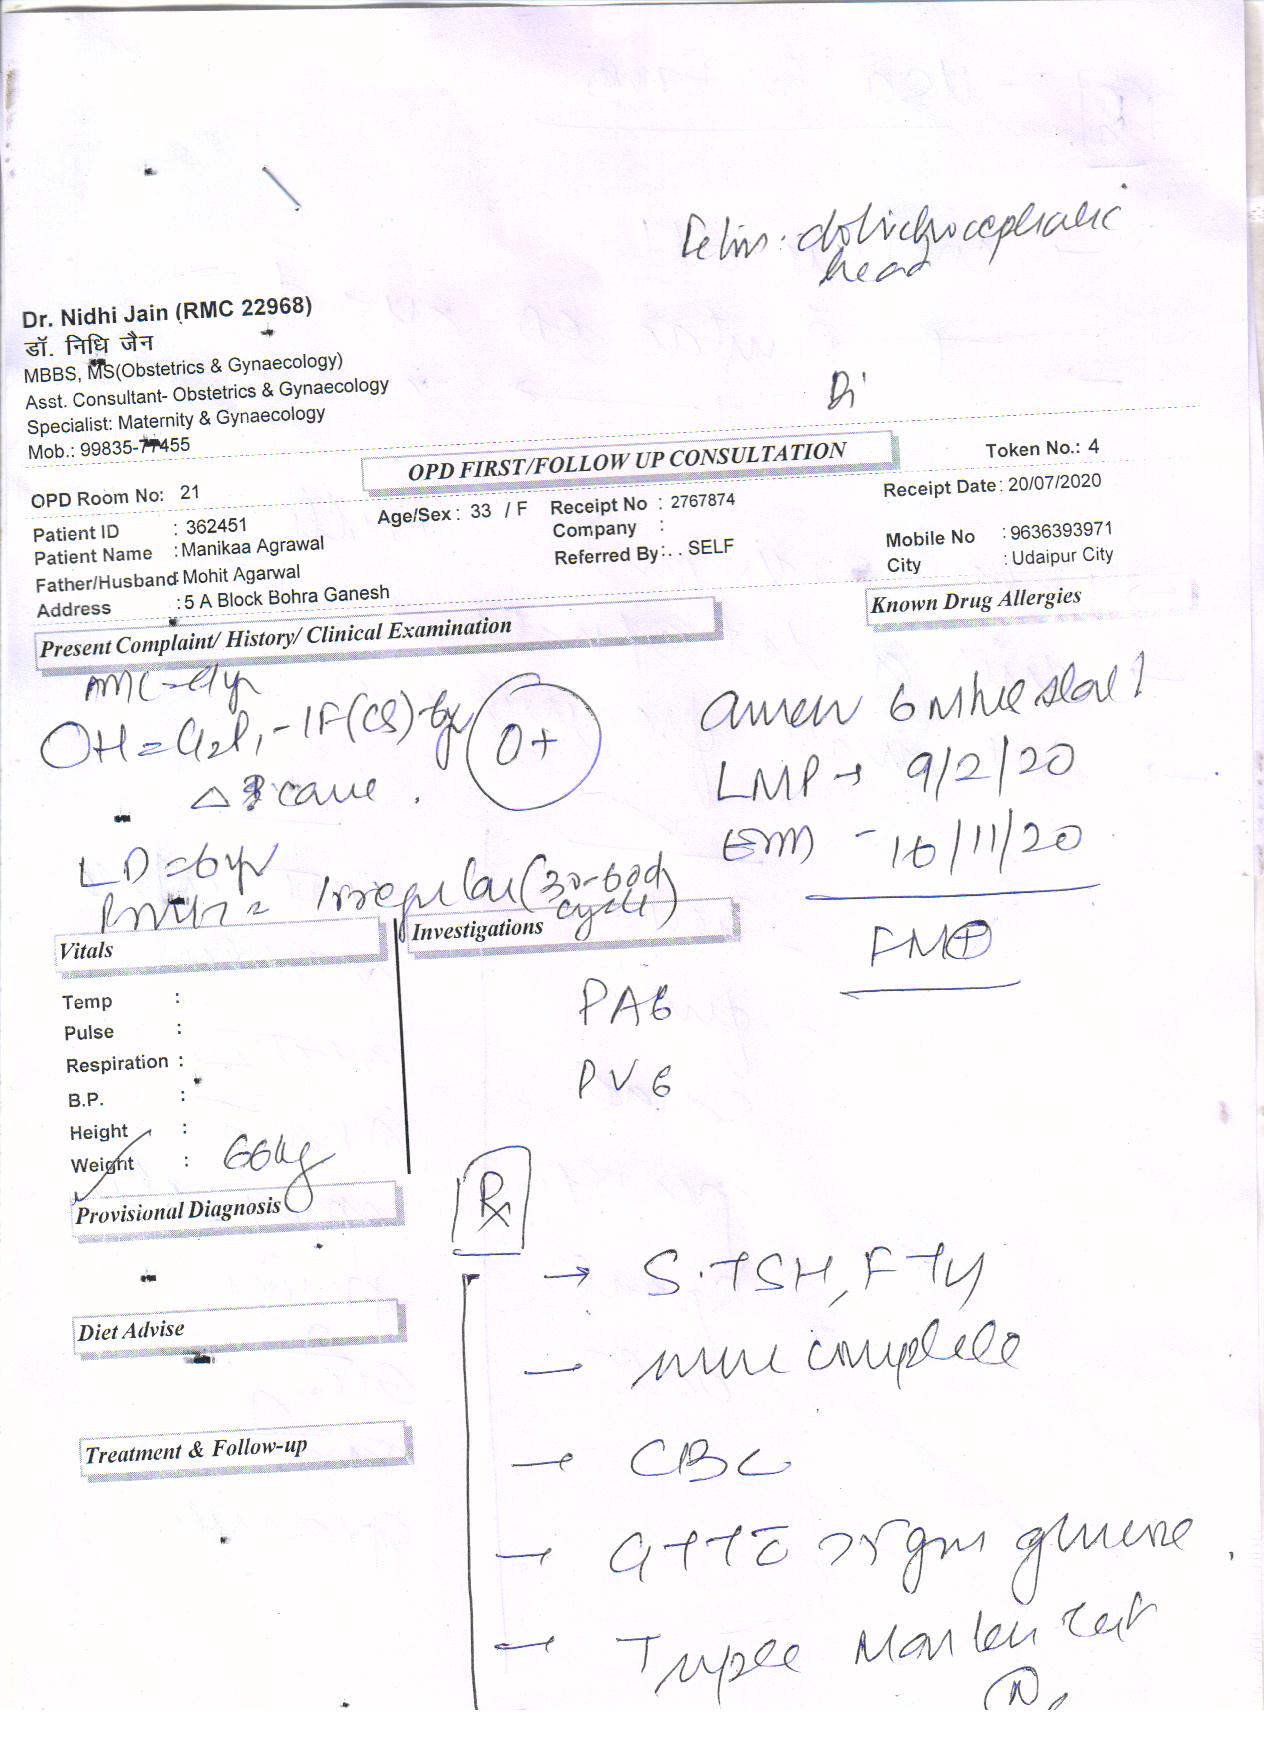 dolichocephalic
head
Dr. Nidhi Jain (RMC 22968)
डॉ. निधि जैन
MBBS, MS(Obstetrics & Gynaecology)
Asst. Consultant- Obstetrics & Gynaecology
Specialist: Maternity & Gynaecology
Mob.: 99835-77455
OPD FIRST/FOLLOW UP CONSULTATION
Token No.: 4
OPD Room No: 21
Age/Sex : 33 / F
Receipt No : 2767874
Receipt Date : 20/07/2020
Patient ID : 362451
Company :
Patient Name : Manikaa Agrawal
Referred By:. . SELF
Mobile No : 9636393971
Father/Husband: Mohit Agarwal
City : Udaipur City
Address : 5 A Block Bohra Ganesh
Known Drug Allergies
Present Complaint/ History/ Clinical Examination
OH = G2P1 - 1F(CS)
O+
LMP → 9/2/20
- 16/11/20
LD = 6yr
Irregular (30-60d
cycle)
FM⊕
Vitals
Investigations
Temp :
Pulse :
Respiration :
B.P. :
Height :
Weight : 66kg
PA
PV
Provisional Diagnosis
Rx
→ S.TSH,
Diet Advise
— complete
Treatment & Follow-up
→ CBC
→ GTT gms glucose
→ Triple Marker test